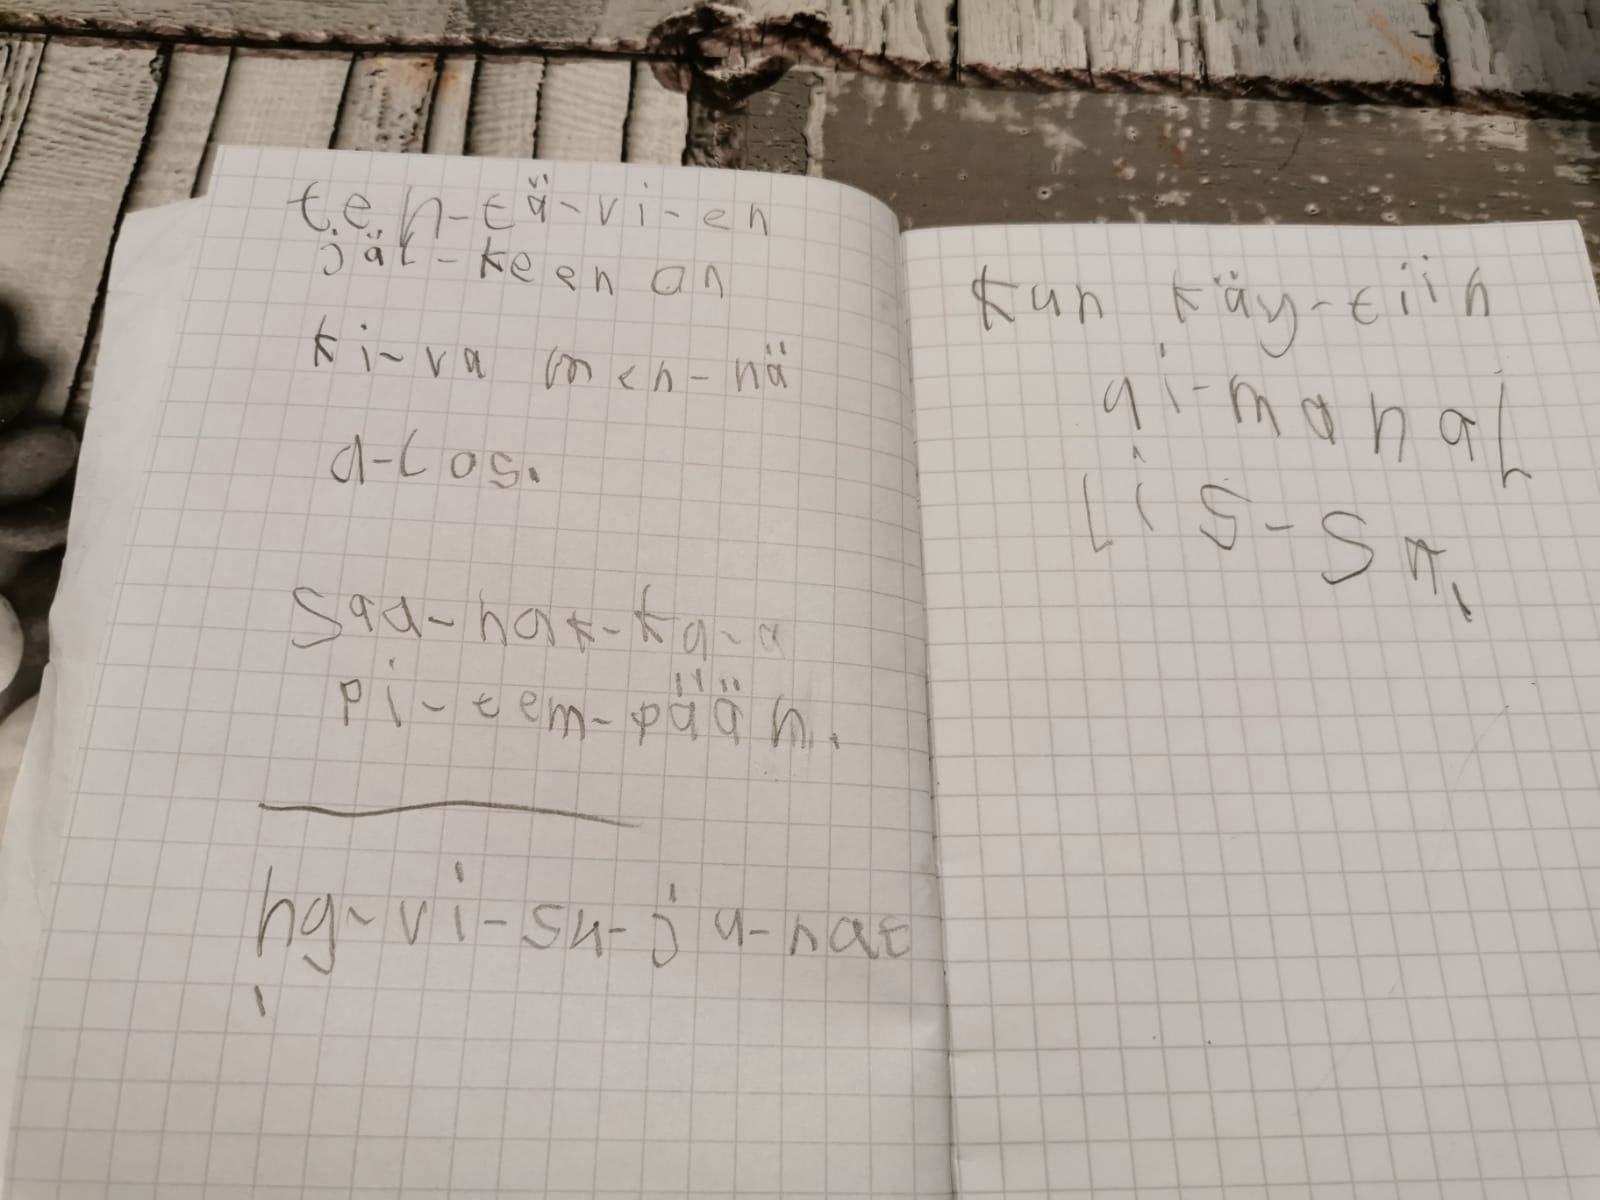 teh-tä-vi-en
jäl-keen on
ki-va men-nä
u-los.
saa-han-ka-a
pi-tem-pään.
hy-vi-su-ju-nat
kun käy-tiin
ai-monal
lis-sa.